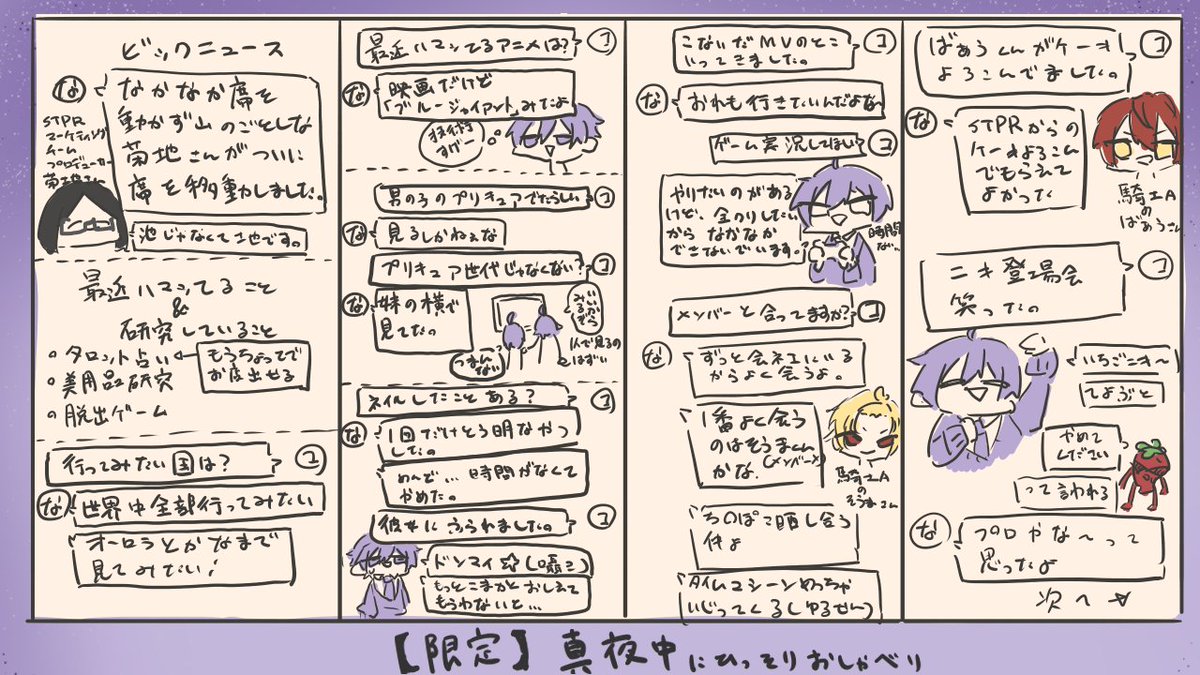 ビックニュース
な
なかなか席を
動かず山のごとしな
菊地さんがついに
席を移動しました。
STPR
マーケティング
チーム
プロデューサー
菊地さん
池じゃなくて地です。
最近ハマってること
&
研究していること
・タロット占い
もうちょっとで
お店出せる
・美用品研究
・脱出ゲーム
行ってみたい国は?
コ
な
世界中全部行ってみたい
オーロラとかなまで
見てみたい!
最近ハマってるアニメは?
コ
な
映画だけど
「ブルージャイアント」みたよ
すげー
男の子のプリキュアでたらしい
コ
な
見るしかねぇな
プリキュア世代じゃなくない?
コ
な
妹の横で
見てたの
いいから
みるぞ
1人で見るの
はずい
つまんない
ネイルしたことある?
コ
な
1回だけとう明なやつ
したの
めんど…時間がなくて
やめた。
彼女にふられましたの
コ
ドンマイ☆(囁き)
もっとこまかくおしえて
もらわないと…
こないだMVのとこ
いってきましたの
コ
な
おれも行きたいんだよな
ゲーム実況してほしい?
コ
やりたいのがある
けど、全のりしたい
からなかなか
できないでいます。
時間
ない…
メンバーと会ってますか?
コ
な
ずっと会社にいる
からよく会うよ。
1番よく会う
のはそうまくん
かな(メンバー×)
騎士A
の
そうまさん
ちのぽこ晒し合う
仲よ
タイムマシーンめっちゃ
いじってくるし(ゆるせん)
ばぁうくんがケーキ
よろこんでましたの
コ
な
STPRからの
ケーキよろこん
でもらえて
よかった
騎士A
の
ばぁうさん
ニキ登場会
笑ったの
コ
いちごニキ〜
てよぶと
やめて
ください
って言われる
な
プロやな〜って
思ったよ
次へ
【限定】真夜中にひっそりおしゃべり